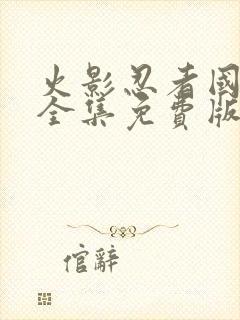 火影忍者國
全集免費版
倌辭